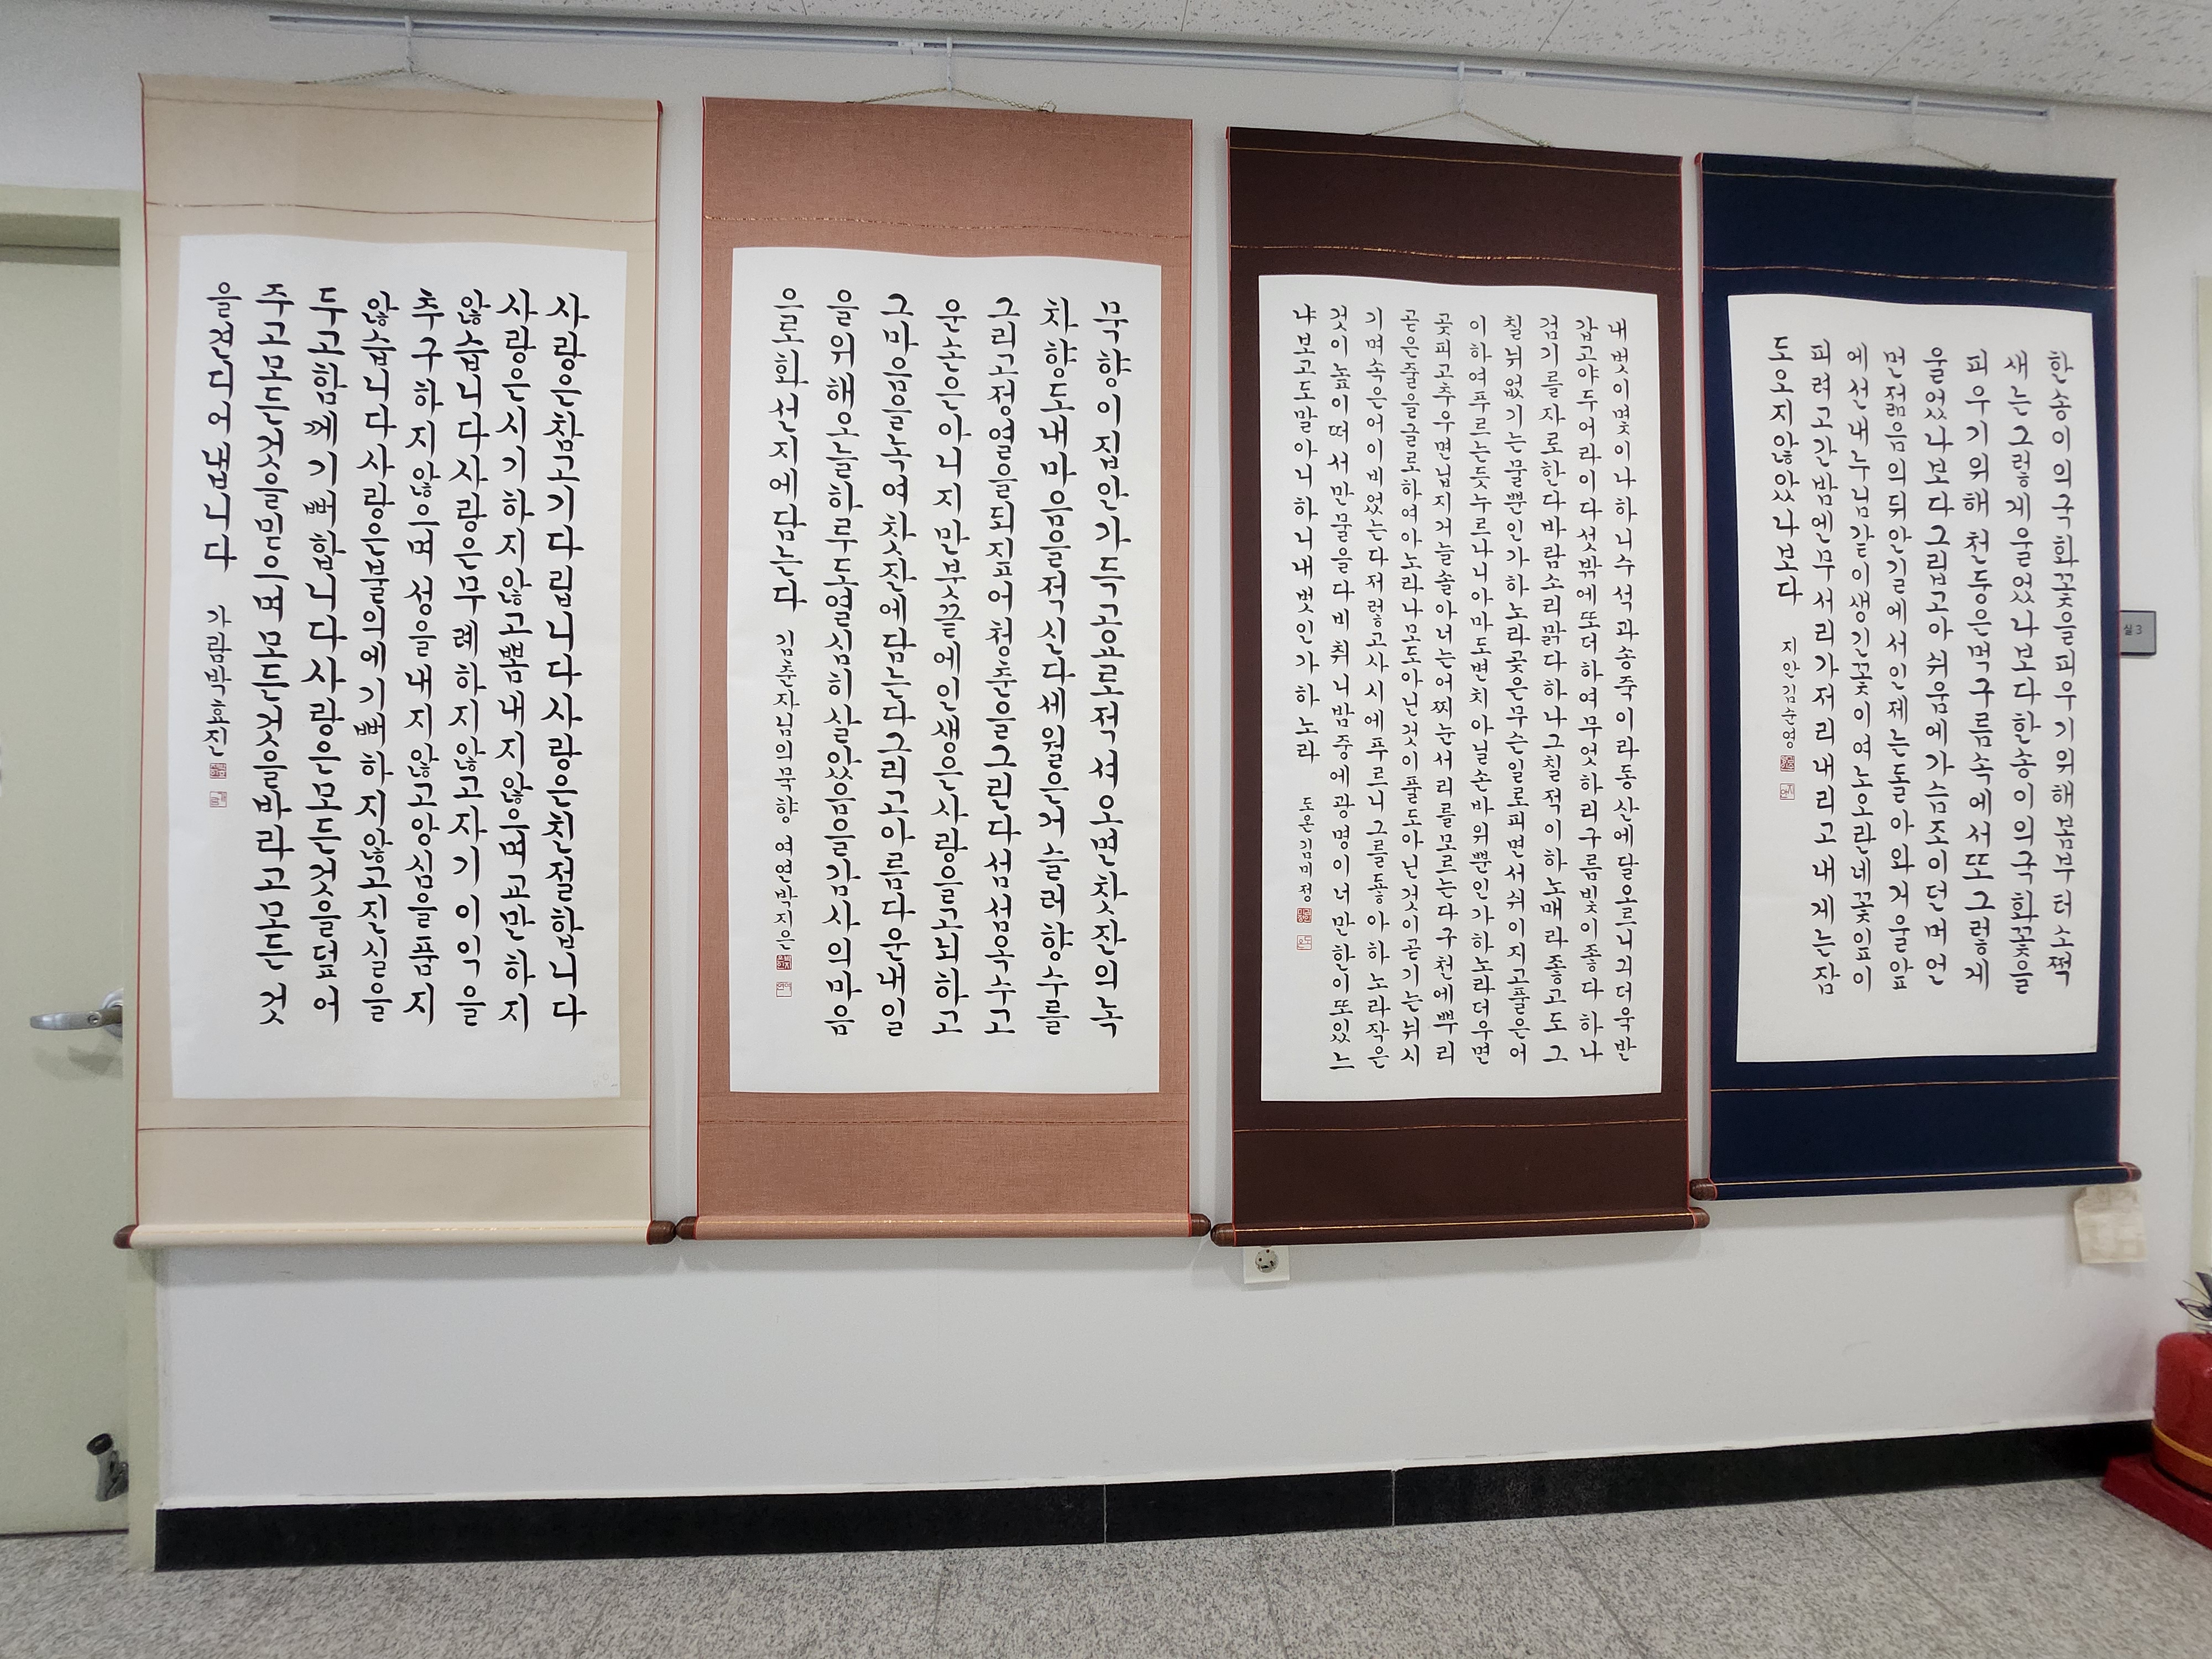 사랑은참고기다립니다사랑은친절합니다
사랑은시기하지않고뽐내지않으며교만하지
않습니다사랑은무례하지않고자기이익을
추구하지않으며성을내지않고앙심을품지
않습니다사랑은불의에기뻐하지않고진실을
두고함께기뻐합니다사랑은모든것을덮어
주고모든것을믿으며모든것을바라고모든것
을견디어냅니다 가람박효진
묵향이집안가득고요로적셔오면찻잔의녹
차향도내마음을적신다세월은 향수를
그리고정열을되짚어청춘을그린다섬섬옥수고
운손은아니지만붓끝에인생은사랑을고뇌하고
그마음을녹여찻잔에담는다그리고아름다운내일
을위해오늘하루도열심히살았음을감사의마음
으로화선지에담는다 김춘자님의묵향 여연박지은
내벗이몇이나하니수석과송죽이라동산에달오르니긔더욱반
갑고야두어라이다섯밖에또더하여무엇하리구름빛이좋다하나
검기를자로한다바람소리맑다하나그칠적이하노매라좋고도그
칠뉘없기는물뿐인가하노라곶은무슨일로피면서쉬이지고풀은어
이하여푸르는듯누르나니아마도변치아닐손바위뿐인가하노라더우면
곶피고추우면닙지거늘솔아너는어찌눈서리를모르는다구천에뿌리
곧은줄을글로하여아노라나모도아닌것이풀도아닌것이곧기는뉘시
기며속은어이비었는다저렇고사시에푸르니그를둏아하노라작은
것이높이떠서만물을다비취니밤중에광명이너만한이또있느
냐보고도말아니하니내벗인가하노라 도온김미정
한송이의국화꽃을피우기위해봄부터소쩍
새는그렇게울었나보다한송이의국화꽃을
피우기위해천둥은먹구름속에서또그렇게
울었나보다그립고아쉬움에가슴조이던머언
먼젊음의뒤안길에서인제는돌아와거울앞
에선내누님같이생긴꽃이여노오란네꽃잎이
피려고간밤엔무서리가저리내리고내게는잠
도오지않았나보다 지안김순영
실3